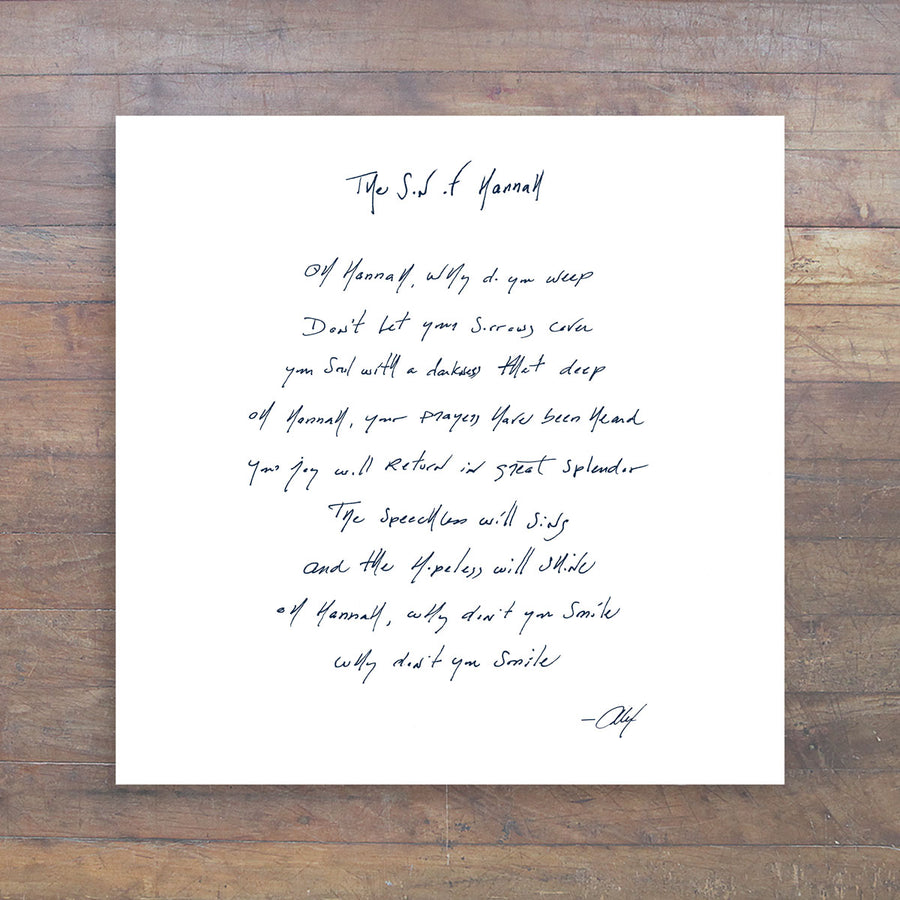 The Son of Hannah
Oh Hannah, why do you weep
Don't let your sorrows cover
your soul with a darkness that deep
Oh Hannah, your prayers have been heard
your joy will return in great splendor
The speechless will sing
and the hopeless will shine
Oh Hannah, why don't you smile
why don't you smile
- Alex